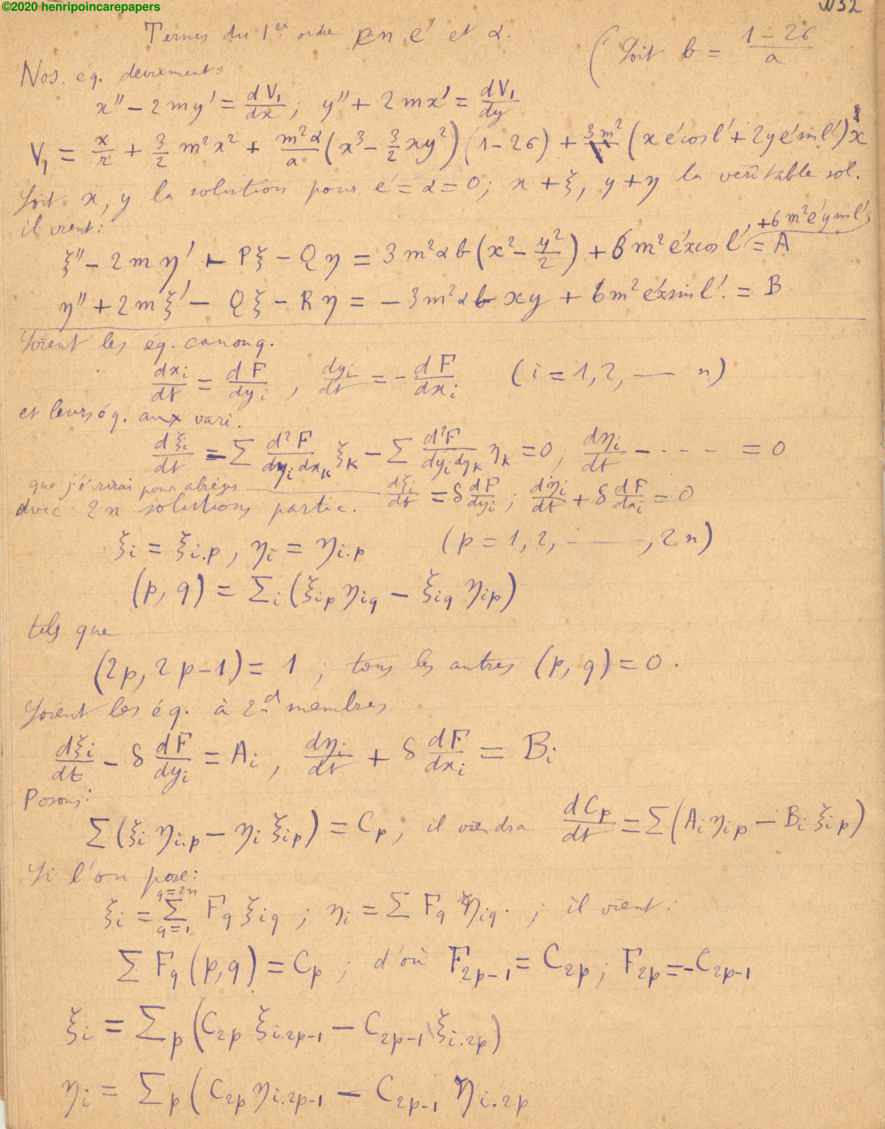 ©2020 henripoincarepapers
N32
Termes du 1er ordre en e' et α.
(Soit b = (1-2σ)/a
Nos. eq. deviennent:
x'' - 2my' = dV₁/dx ; y'' + 2mx' = dV₁/dy
V₁ = x/r + 3/2 m²x² + m²α/a (x³ - 3/2 xy²)(1-2σ) + 3m² (x e'cos l' + 2y e' sin l') x
Soit x, y la solution pour e' = α = 0; x + ξ, y + η la véritable sol.
il vient:
+6 m²e'y sin l'
ξ'' - 2mη' - Pξ - Qη = 3m²αb (x² - y²/2) + 6m²e'x cos l' = A
η'' + 2mξ' - Qξ - Rη = -3m²αb xy + 6m²e'x sin l' = B
Soient les éq. canonq.
dxᵢ/dt = dF/dyᵢ , dyᵢ/dt = - dF/dxᵢ (i = 1, 2, — n)
et leurs éq. aux vari.
dξᵢ/dt - Σ d²F/dyᵢdxₖ ξₖ - Σ d²F/dyᵢdyₖ ηₖ = 0; dηᵢ/dt - - - - - = 0
que j'écrirai pour abréger dξᵢ/dt = δ dF/dyᵢ ; dηᵢ/dt + δ dF/dxᵢ = 0
2n solutions partic.
ξᵢ = ξᵢ.ₚ , ηᵢ = ηᵢ.ₚ (p = 1, 2, - — , 2n)
(p, q) = Σᵢ (ξᵢₚ ηᵢq - ξᵢq ηᵢₚ)
tels que
(2p, 2p-1) = 1 ; tous les autres (p, q) = 0.
Soient les éq. à 2d membres
dξᵢ/dt - δ dF/dyᵢ = Aᵢ , dηᵢ/dt + δ dF/dxᵢ = Bᵢ
Posons:
Σ (ξᵢ ηᵢ.ₚ - ηᵢ ξᵢₚ) = Cₚ, il viendra dCₚ/dt = Σ (Aᵢ ηᵢₚ - Bᵢ ξᵢₚ)
Si l'on pose:
ξᵢ = Σ (q=1, q=2n) Fq ξᵢq ; ηᵢ = Σ Fq ηᵢq. ; il vient:
Σ Fq (p, q) = Cₚ ; d'où F₂ₚ₋₁ = C₂ₚ ; F₂ₚ = -C₂ₚ₋₁
ξᵢ = Σₚ (C₂ₚ ξᵢ.₂ₚ₋₁ - C₂ₚ₋₁ ξᵢ.₂ₚ)
ηᵢ = Σₚ (C₂ₚ ηᵢ.₂ₚ₋₁ - C₂ₚ₋₁ ηᵢ.₂ₚ